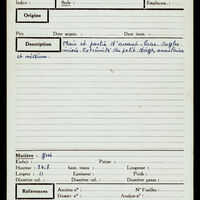 Indice : Style : Emplacem. :
Origine
Prix Date acquis. : Date insc. :
Description Main et partie d'avant-bras. Ongles
incisés. Extrémité du petit doigt, annulaire
et médium.
Matière : grès
Enduit : Patine :
Hauteur : haut. tenon : Longueur :
Largeur : 11 Epaisseur : Poids :
Diamètre col. : Diamètre panse :
Références Anciens nos : No Fouilles :
Dossier no : Analyse :